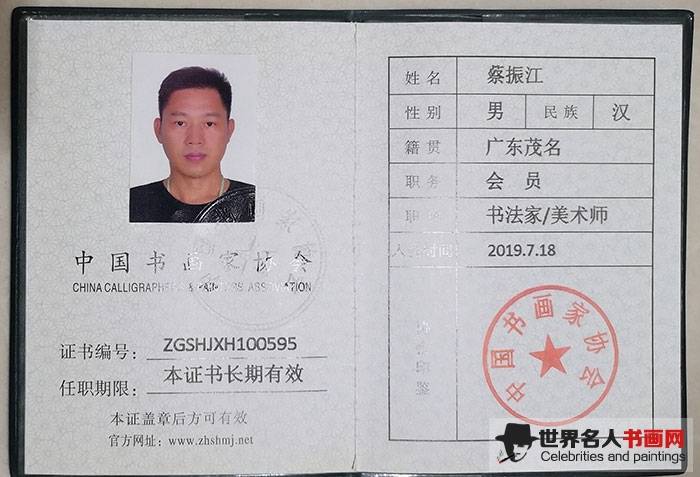 中国书画家协会
CHINA CALLIGRAPHERS PAINTERS ASSOVIATION
证书编号：ZGSHJXH100595
任职期限：本证书长期有效
本证盖章后方可有效
官方网址：www.zhshmj.net
姓名 蔡振江
性别 男 民族 汉
籍贯 广东茂名
职务 会 员
职 书法家/美术师
入 时间: 2019.7.18
中国书画家协会
世界名人书画网
Celebrities and paintings